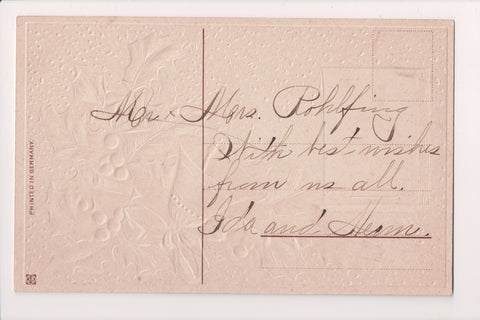 Mr. & Mrs. Rohlfing
With best wishes
from us all.
Ida and Herm.
PRINTED IN GERMANY.